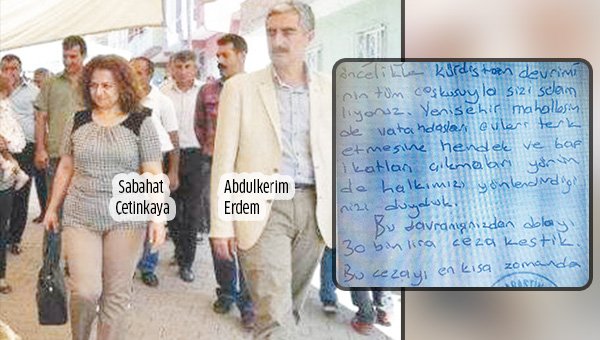 Sabahat
Çetinkaya
Abdulkerim
Erdem
öncelikle Kürdistan devrimi
nin tüm coşkusuyla sizi selam
lıyoruz. Yenişehir mahallesin
de vatandaşları evleri terk
etmesine hendek ve bar
ikatları çıkmaları yönün
de halkımızı yönlendirdiği
nizi duyduk.
Bu davranışınızden dolayı
30 bin lira ceza kestik.
Bu cezayı en kısa zamanda